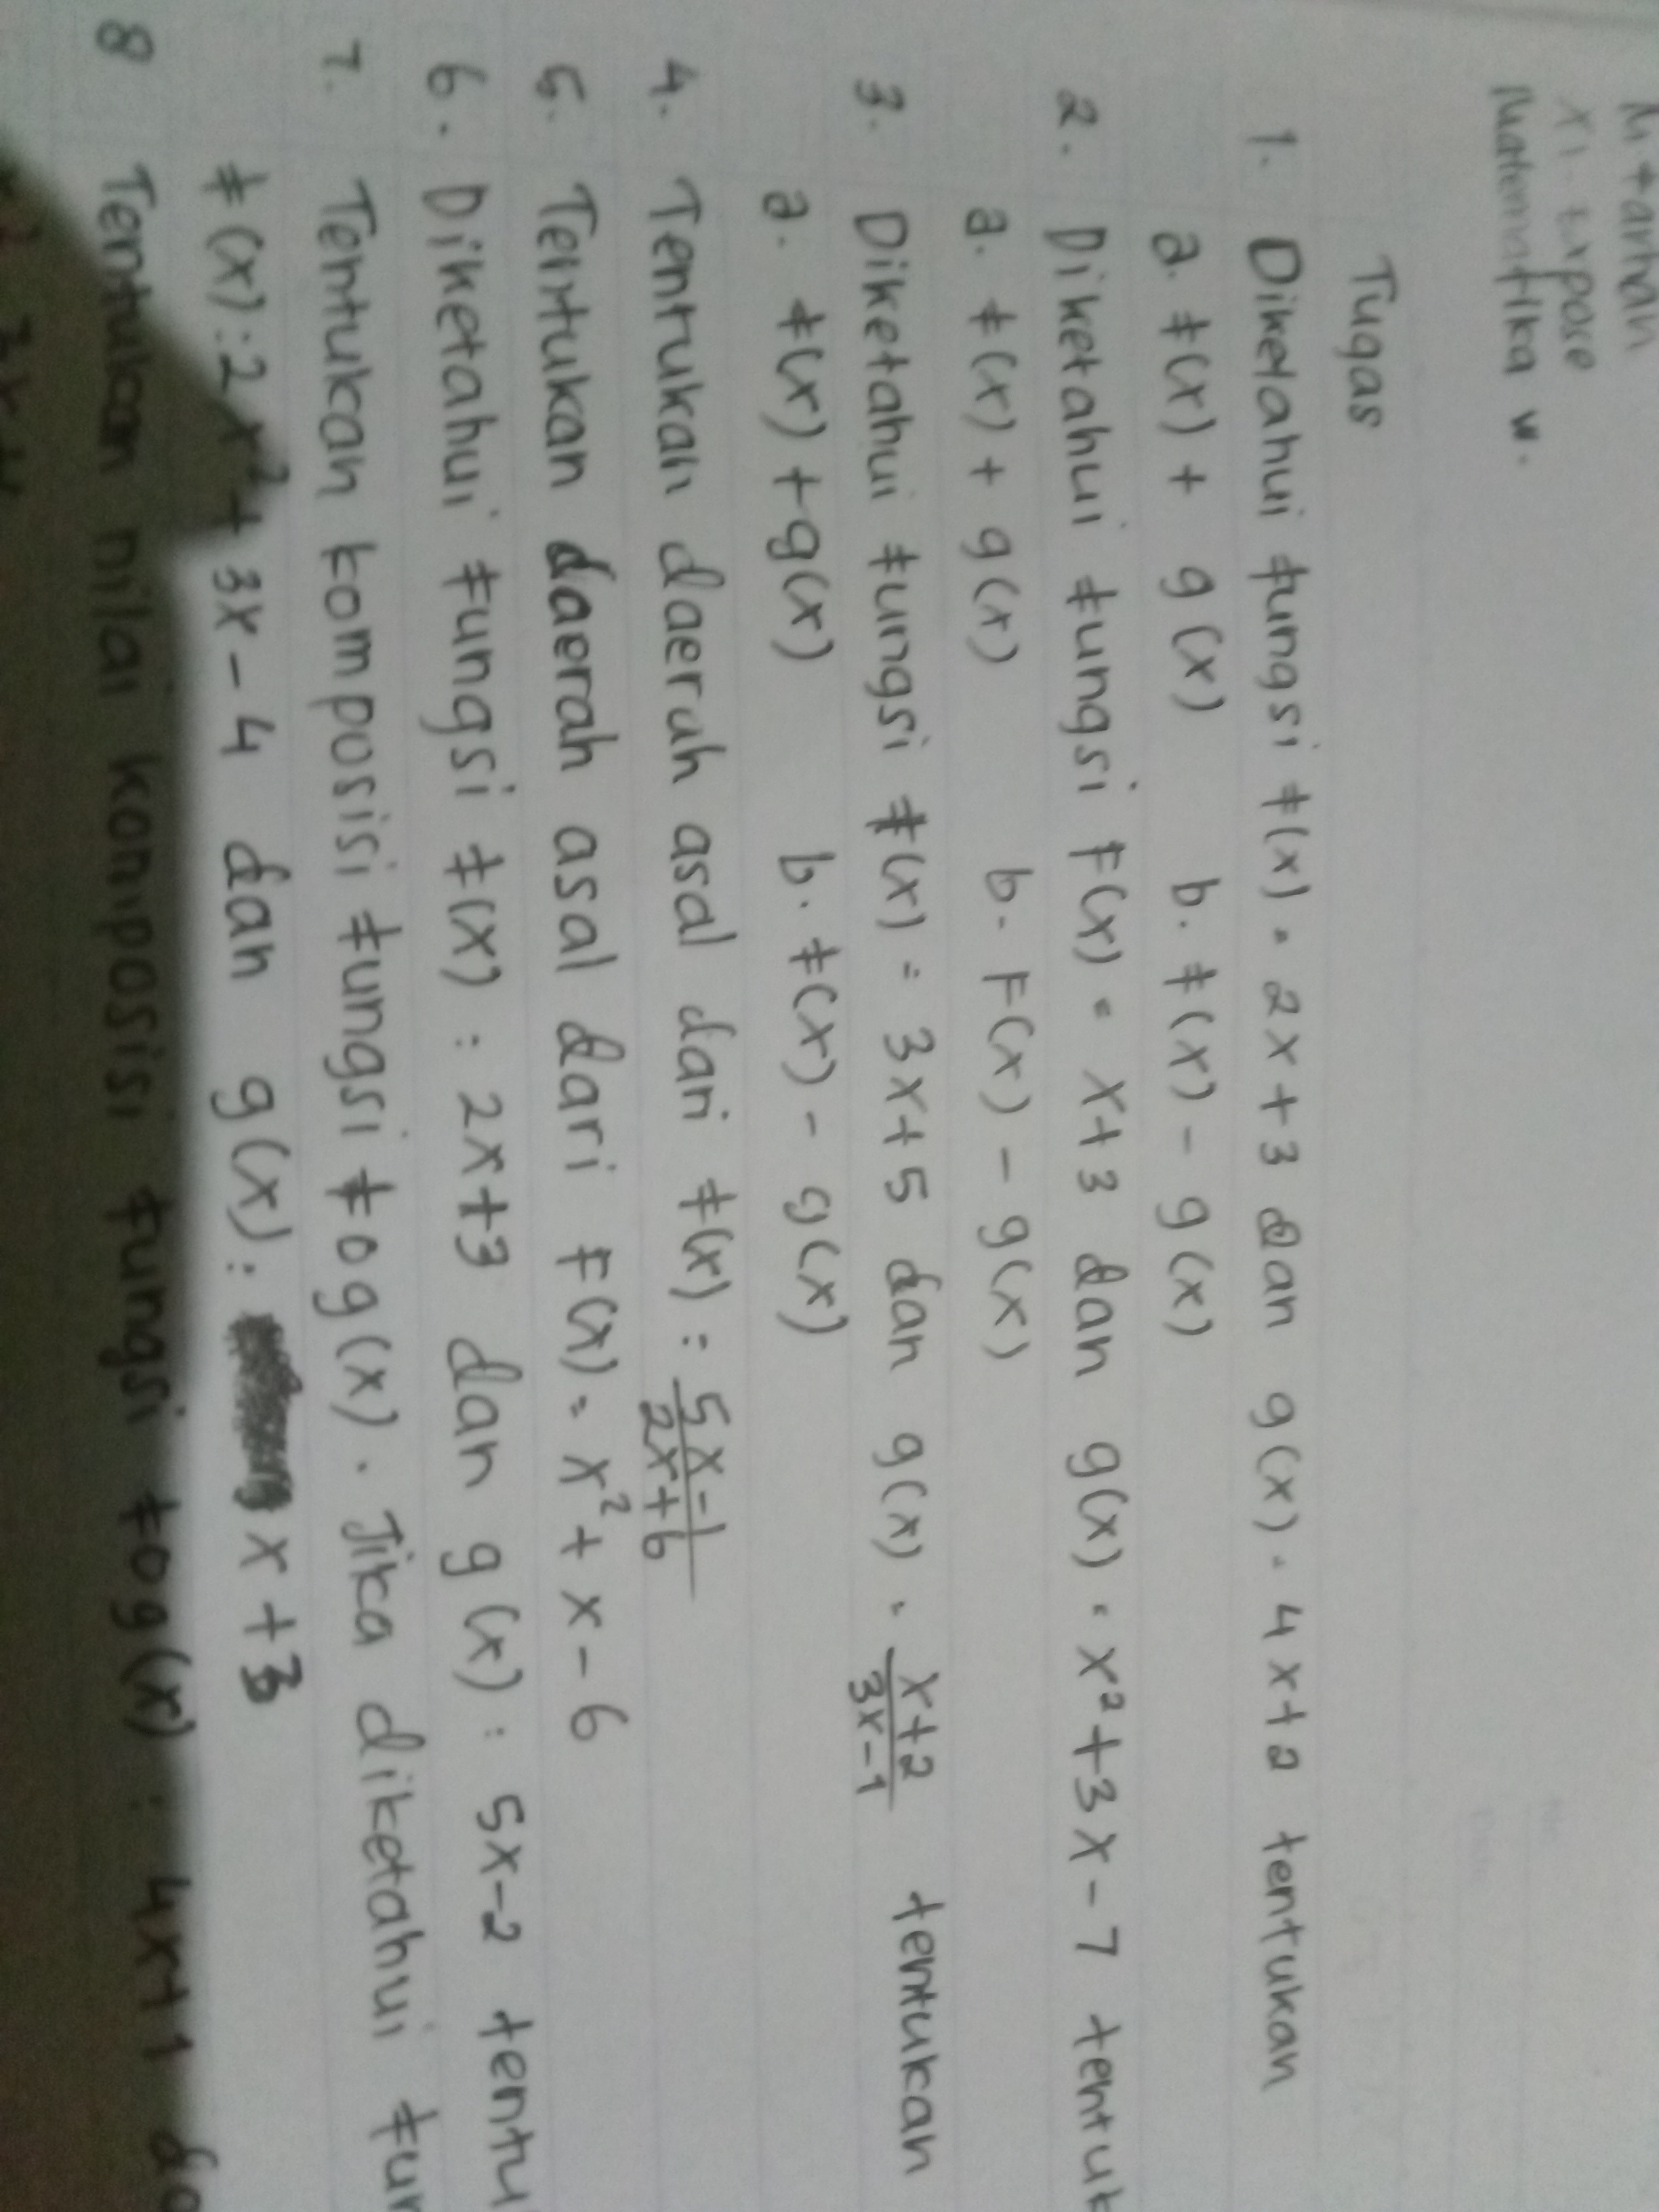 M. Farhan
XI. Expose
Matematika w.
Tugas
1. Diketahui fungsi f(x) = 2x+3 dan g(x) = 4x+2 tentukan
a. f(x) + g(x) b. f(x) - g(x)
2. Diketahui fungsi F(x) = x+3 dan g(x) = x²+3x-7 tentuk
a. f(x) + g(x) b. F(x) - g(x)
3. Diketahui fungsi f(x) = 3x+5 dan g(x) = x+2/3x-1 tentukan
a. f(x) + g(x) b. f(x) - g(x)
4. Tentukan daerah asal dari f(x) = 5x-1/2x+6
5. Tentukan daerah asal dari F(x) = x²+x-6
6. Diketahui fungsi f(x) : 2x+3 dan g(x) : 5x-2 tentu
7. Tentukan komposisi fungsi fog(x). Jika diketahui fun
f(x) : 2x²+3x-4 dan g(x) : x+3
8 Tentukan nilai komposisi fungsi fog(x) : 4x+1 da